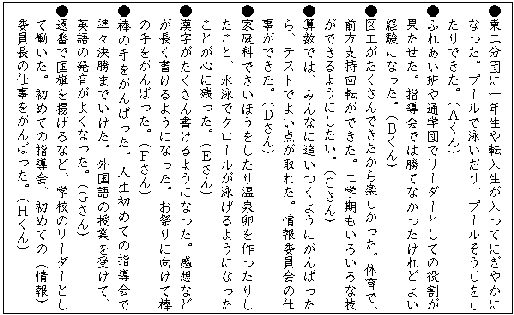 ●東二分団に一年生や転入生が入ってにぎやかに
なった。プールで泳いだり、プールそうじをし
たりできた。(Aくん)
●ふれあい班や通学団でリーダーとしての役割が
果たせた。指導会では勝てなかったけれどよい
経験になった。(Bくん)
●図工がたくさんできたから楽しかった。体育で、
前方支持回転ができた。二学期もいろいろな技
ができるようにしたい。(Cさん)
●算数では、みんなに追いつくようにがんばった
ら、テストでよい点が取れた。情報委員会の仕
事ができた。(Dさん)
●家庭科でさいほうをしたり温泉卵を作ったりし
たこと、水泳でクロールが泳げるようになった
ことが心に残った。(Eさん)
●漢字がたくさん書けるようになった。感想など
が長く書けるようになった。お祭りに向けて棒
の手をがんばった。(Fさん)
●棒の手をがんばった。人生初めての指導会で
準々決勝までいけた。外国語の授業を受けて、
英語の発音がよくなった。(Gさん)
●通番で国旗を揚げるなど、学校のリーダーとし
て働いた。初めての指導会、初めての(情報)
委員長の仕事をがんばった。(Hくん)